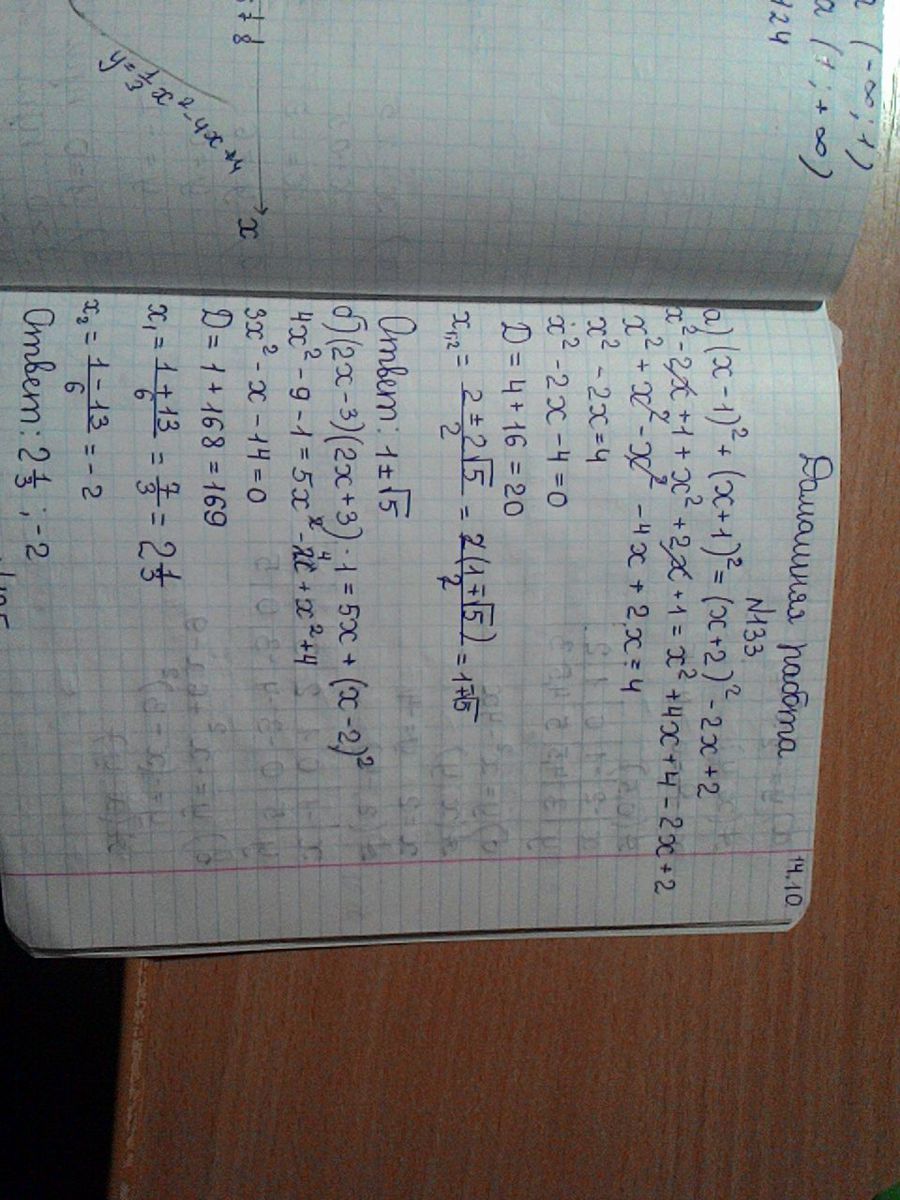 (-∞; 1)
(1; +∞)
y = 1/3 x² - 4x + 4
x
14.10
Домашняя работа
N133
а) (x - 1)² + (x + 1)² = (x + 2)² - 2x + 2
x² - 2x + 1 + x² + 2x + 1 = x² + 4x + 4 - 2x + 2
x² + x² - x² - 4x + 2x = 4
x² - 2x = 4
x² - 2x - 4 = 0
D = 4 + 16 = 20
x₁,₂ = (2 ± 2√5)/2 = 2(1 ± √5)/2 = 1 ± √5
Ответ: 1 ± √5
б) (2x - 3)(2x + 3) · 1 = 5x + (x - 2)²
4x² - 9 - 1 = 5x - 4x + x² + 4
3x² - x - 14 = 0
D = 1 + 168 = 169
x₁ = (1 + 13)/6 = 7/3 = 2 1/3
x₂ = (1 - 13)/6 = -2
Ответ: 2 1/3 ; -2